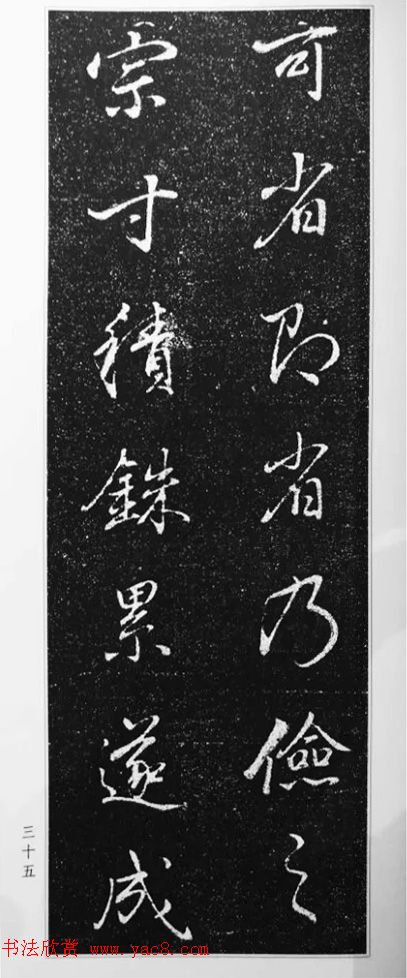 可省即省乃儉之
宗寸積銖累遂成
三十五
书法欣赏 www.yac8.com